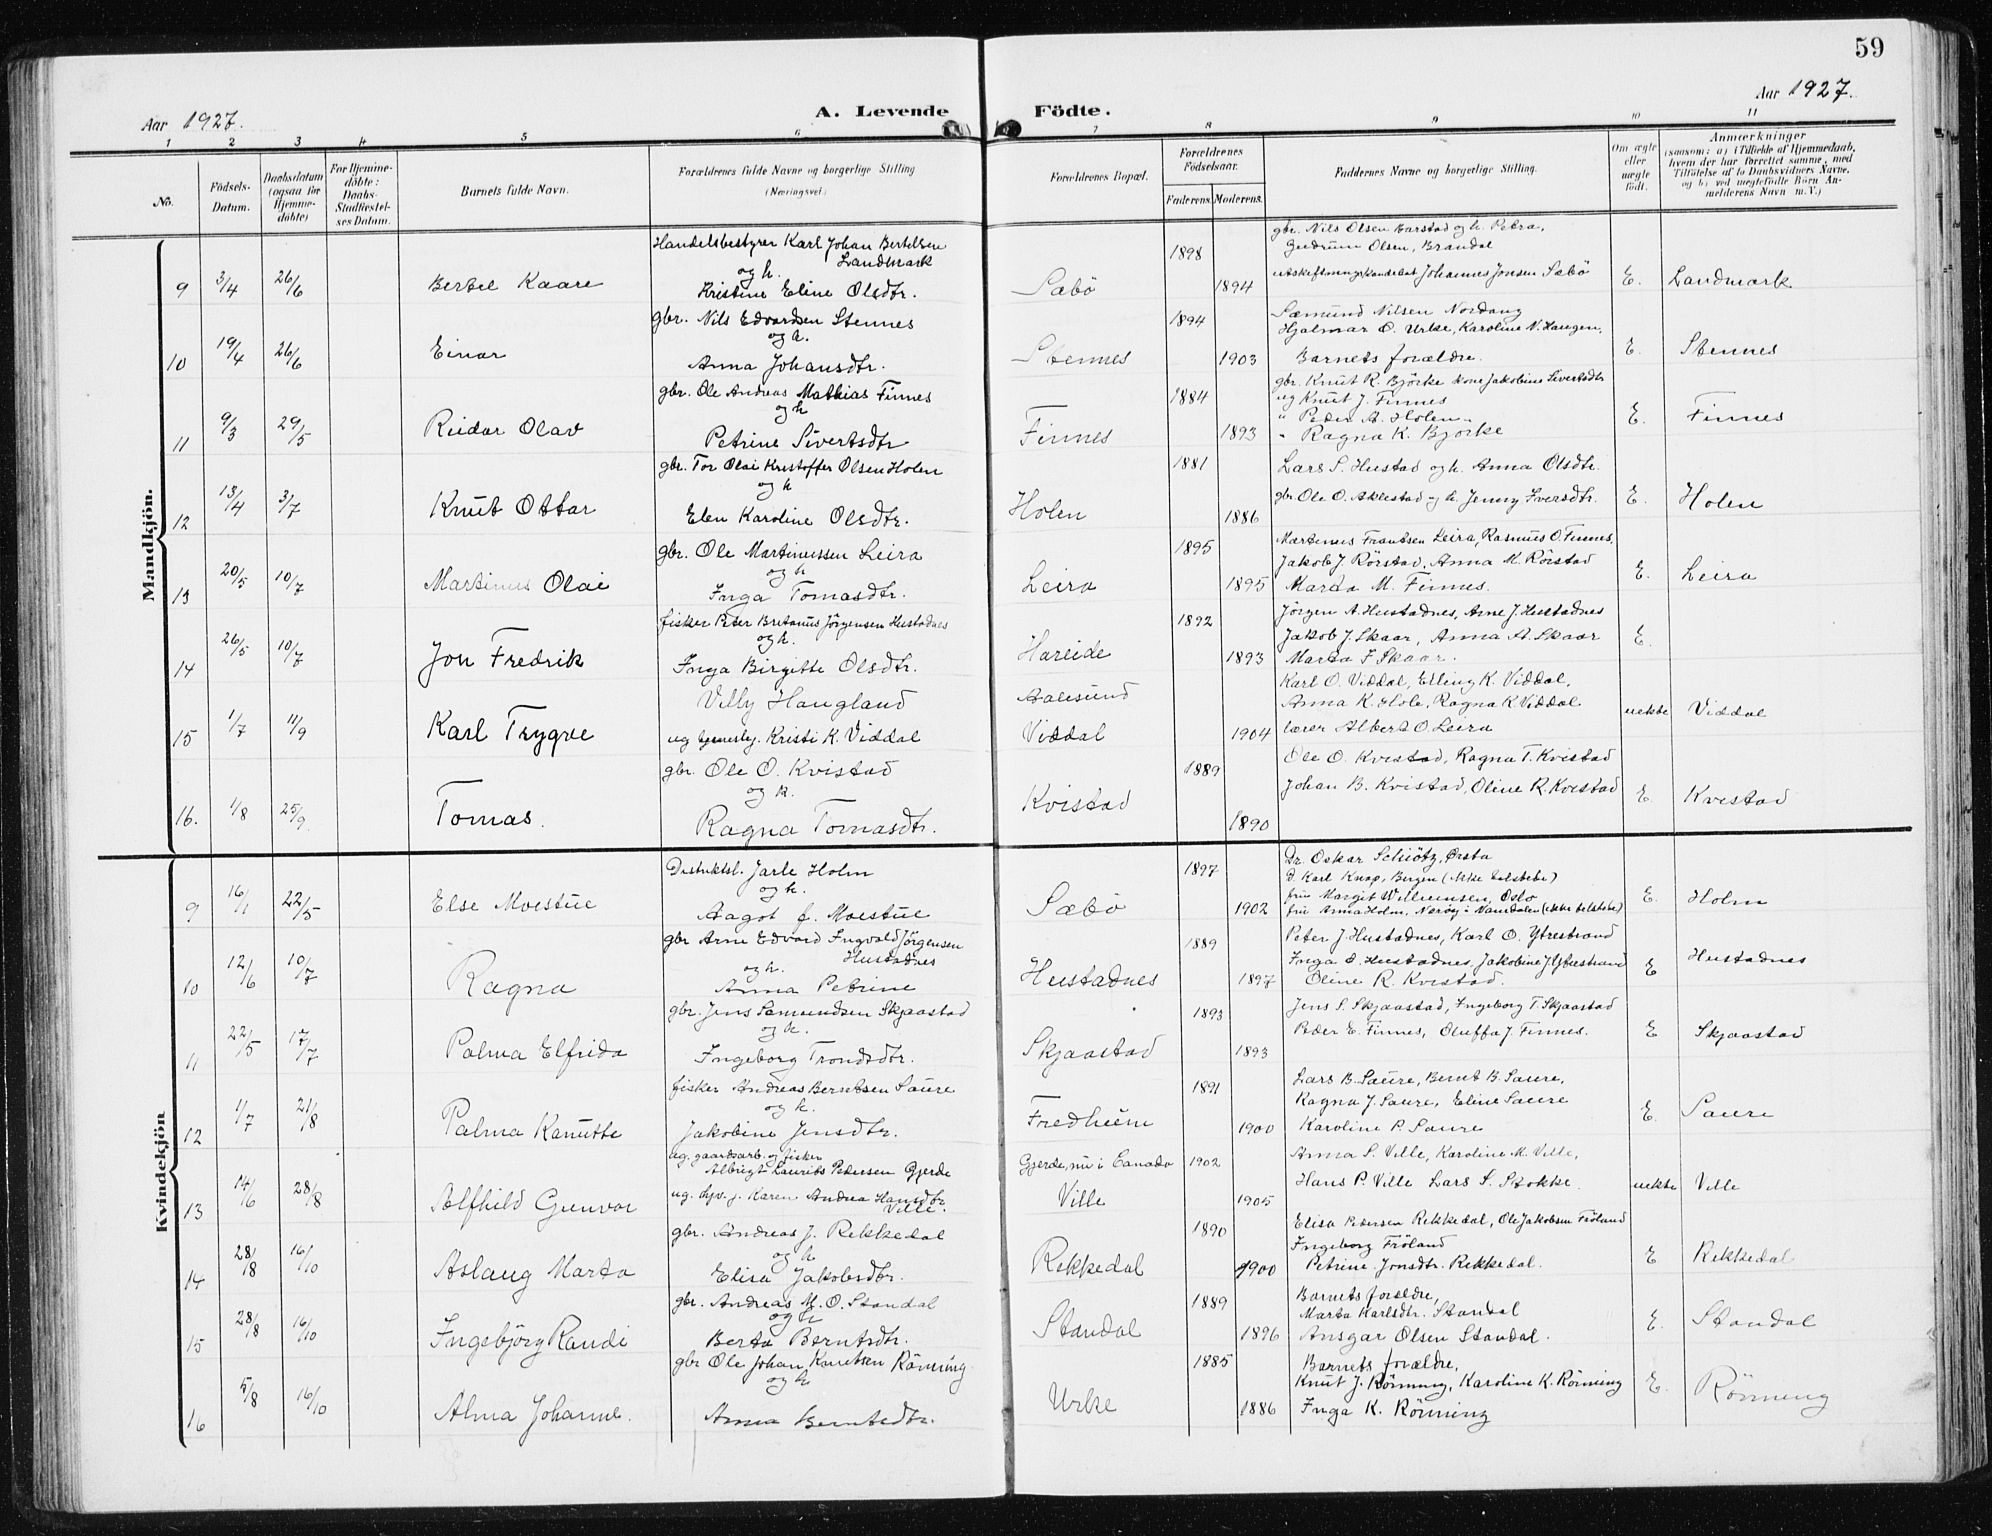 59
Aar 1927.
A. Levende
Födte.
Aar 1927.
1 2 3 4 5 6 7 8 9 10 11
No.
Födsels-
Datum.
Daabsdatum
(ogsaa for
Hjemme-
döbte)
For Hjemme-
döbte:
Daabs-
Stadfæstel-
ses Datum.
Barnets fulde Navn.
Forældrenes fulde Navne og borgerlige Stilling
(Næringsvei.)
Forældrenes Bopæl.
Forældrenes
Födselsaar.
Faderens. Moderens.
Faddernes Navne og borgerlige Stilling.
Om ægte
eller
uægte
födt.
Anmærkninger
(saasom: a) i Tilfælde af Hjemmedaab,
hvem der har forrettet samme, med
Tilföielse af to Daabsvidners Navne,
og b) ved uægtefödte Börn An-
melderens Navn m. V.)
Mandkjön.
9 3/4 26/6 Bertel Kaare
Handelsbestyrer Karl Johan Bertelsen
Landmark
og h.
Kristine Eline Olsdtr.
Sæbö 1898 1894
gbr. Nils Olsen Barstad og h. Petra,
Gudrun Olsen, Brandal
Utskiftningskandidat Johannes Jonsen Sæbö
E. Landmark
10 19/4 26/6 Einar
gbr. Nils Edvardsen Stennes
og h.
Anna Johansdtr.
Stennes 1894 1903
Sæmund Nilsen Nordang
Hjalmar O. Urke, Karoline N. Haugen,
Barnets forældre.
E. Stennes
11 9/3 29/5 Reidar Olav
gbr. Ole Andreas Mathias Finnes
og h
Petrine Sivertsdtr
Finnes 1884 1893
gbr. Knut R. Björke kone Jakobine Sivertsdtr
ug Knut J. Finnes
" Peder A. Holen
" Ragna K. Björke
E. Finnes
12 13/4 3/7 Knut Ottar
gbr. Tor Olai Kristoffer Olsen Holen
og h
Elen Karoline Olsdtr.
Holen 1881 1886
Lars S. Hustad og h. Anna Olsdtr.
gbr. Ole O. Aklestad og h. Jenny Iversdtr.
E. Holen
13 20/5 10/7 Martinus Olai
gbr. Ole Martinussen Leira
og h
Inga Tomasdtr.
Leira 1895 1895
Martinus Frantsen Leira, Rasmus O. Finnes,
Jakob J. Rörstad, Anna M. Rörstad
Marta M. Finnes.
E. Leira
14 26/5 10/7 Jon Fredrik
fisker Peter Bretanus Jörgensen Hustadnes
og h.
Inga Birgitte Olsdtr.
Hareide 1892 1893
Jörgen A. Hustadnes, Arne J. Hustadnes
Jakob J. Skaar, Anna A. Skaar
Marta J. Skaar.
E.
15 1/7 11/9 Karl Trygve
Villy Haugland
ug tjenestej. Kristi K. Viddal
Aalesund
Viddal 1904
Karl O. Viddal, Erling K. Viddal,
Anna K. Hole, Ragna K. Viddal
lærer Albert O. Leira
uekte Viddal
16. 1/8 25/9 Tomas.
gbr. Ole O. Kvistad
og h.
Ragna Tomasdtr.
Kvistad 1889 1890
Ole O. Kvistad, Ragna T. Kvistad
Johan B. Kvistad, Oline R. Kvistad
E. Kvistad
Kvindekjön
9 16/1 22/5 Else Moestue
Distriktsl. Jarle Holm
og h.
Aagot f. Moestue
Sæbö 1897 1902
Dr. Oskar Schiötz, Örsta
D. Karl Knap, Bergen (ikke tilstede)
fru Margit Willumsen, Oslo
fru Anna Holm, Næröy i Namdalen (ikke tilstede)
E. Holm
10 12/6 10/7 Ragna
gbr Arne Edvard Ingvald Jörgensen
Hustadnes
og h.
Anna Petrine
Hustadnes 1889 1897
Peter J. Hustadnes, Karl O. Ytrestrand
Inga O. Hustadnes, Jakobine J. Ytrestrand
Oline R. Kvistad.
E Hustadnes
11 22/5 17/7 Palma Elfrida
gbr. Jens Samundsen Skjaastad
og h.
Ingeborg Trondsdtr.
Skjaastad 1893 1893
Jens S. Skjaastad, Ingeborg T. Skjaastad
Peder E. Finnes, Oluffa J. Finnes.
E Skjaastad
12 1/7 21/8 Palma Kanutte
fisker Andreas Berntsen Saure
og h.
Jakobine Jensdtr.
Fredheim 1891 1900
Lars B. Saure, Bernt B. Saure,
Ragna J. Saure, Eline Saure
Karoline P. Saure
E. Saure
13 14/6 28/8 Alfhild Gunvor
ug. gaardsarb. og fisker
Albrigt Laurits Pedersen Gjerde
ug. tjv. j. Karen Andrea Hansdtr.
Ville.
Gjerde, nu i Canada
Ville 1902 1905
Anna S. Ville, Karoline M. Ville,
Hans P. Ville Lars S. Stokke.
uekte Ville
14 28/8 16/10 Aslaug Marta
gbr. Andreas J. Rekkedal
og h
Elisa Jakobsdtr.
Rekkedal 1890 1900
Elisa Pedersen Rekkedal, Ole Jakobsen Fröland
Ingeborg Fröland
Petrine Jonsdtr. Rekkedal.
E Rekkedal
15 28/8 16/10 Ingebjörg Randi
gbr. Andreas M. O. Standal
og h
Berta Berntsdtr.
Standal 1889 1896
Barnets forældre,
Marta Karlsdtr. Standal
Ansgar Olsen Standal.
E. Standal
16 5/8 16/10 Alma Johanne.
gbr Ole Johan Knutsen Rönning
og h
Anna Berntsdtr.
Urke 1885 1886
Barnets forældre,
Knut J. Rönning, Karoline K. Rönning
Inga K. Rönning
E. Rönning